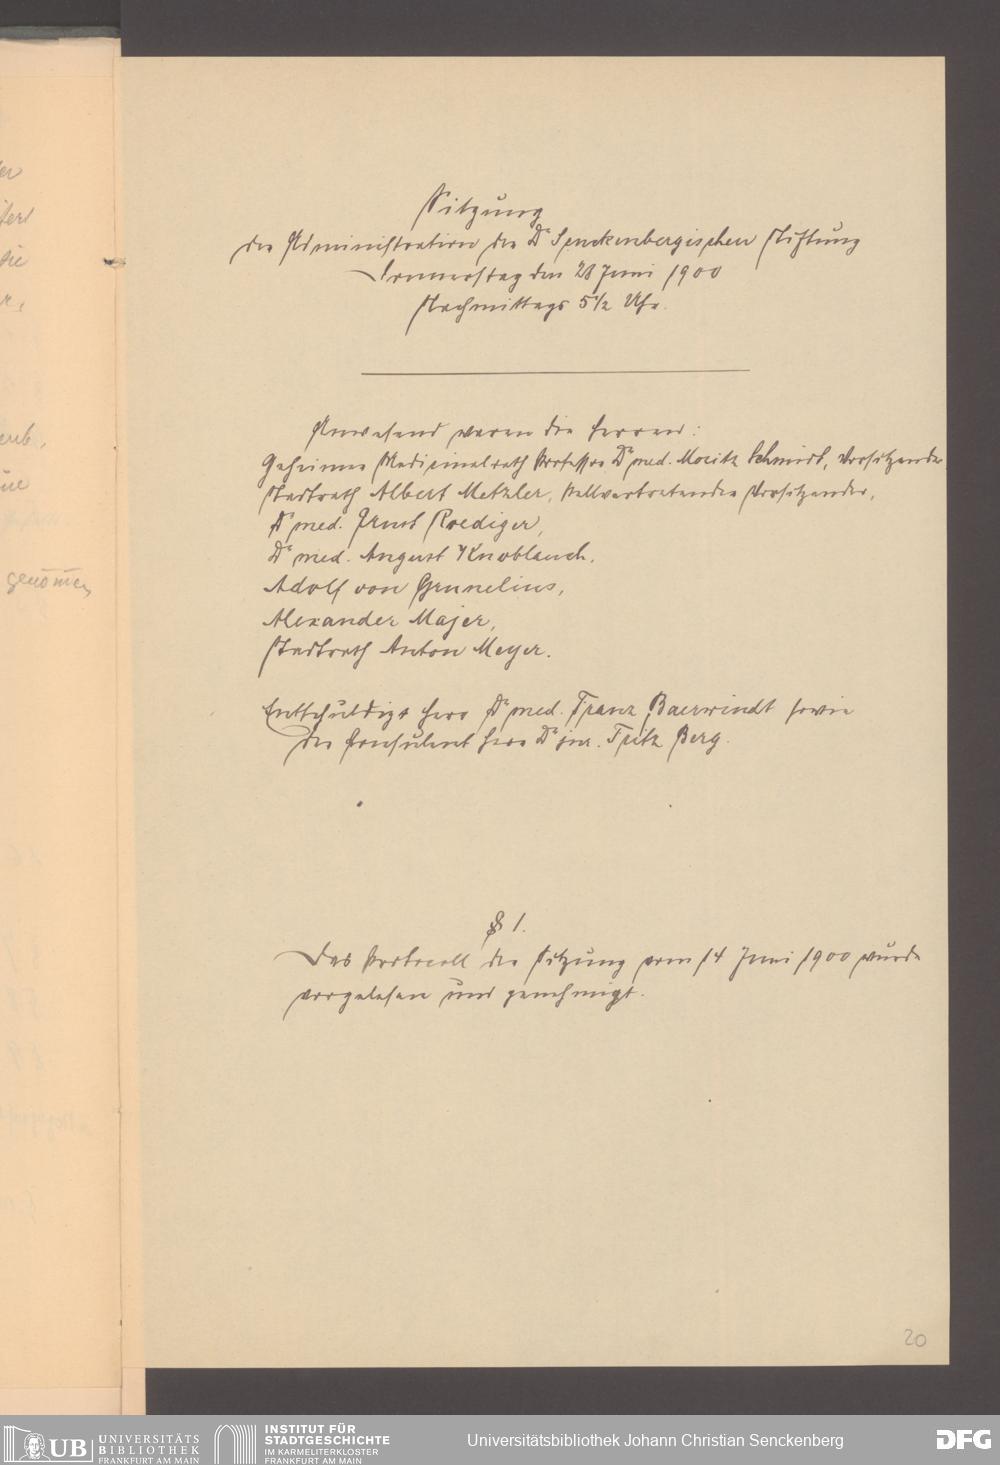 Sitzung
der Administration der Dr Senckenbergischen Stiftung
Donnerstag den 28 Juni 1900
Nachmittags 5½ Uhr.
Anwesend waren die Herren:
Geheimer Medicinalrath Professor Dr med. Moritz Schmidt, Vorsitzender
Stadtrath Albert Metzler, stellvertretender Vorsitzender,
Dr med. Ernst Roediger,
Dr med. August Knoblauch,
Adolf von Grunelius,
Alexander Majer,
Stadtrath Anton Meyer.
Entschuldigt Herr Dr med. Franz Baerwindt sowie
der Consulent Herr Dr jur. Fritz Berg.
§ 1.
Das Protocoll der Sitzung vom 14 Juni 1900 wurde
vorgelesen und genehmigt.
genom̄en
20
UB UNIVERSITÄTS
BIBLIOTHEK
FRANKFURT AM MAIN
INSTITUT FÜR
STADTGESCHICHTE
IM KARMELITERKLOSTER
FRANKFURT AM MAIN
Universitätsbibliothek Johann Christian Senckenberg
DFG